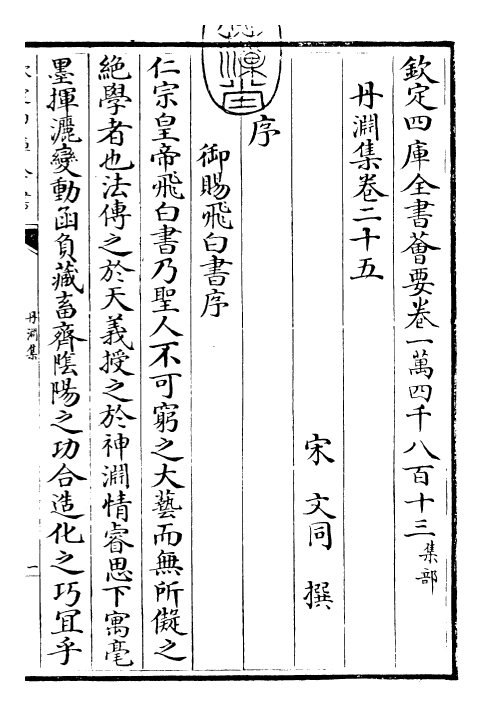 欽定四庫全書薈要卷一萬四千八百十三集部
丹淵集卷二十五
宋 文同 撰
序
御賜飛白書序
仁宗皇帝飛白書乃聖人不可窮之大藝而無所儗之
絶學者也法傳之於天義授之於神淵情睿思下寓毫
墨揮灑變動函負藏畜齊陰陽之功合造化之巧宜乎
丹淵集
一